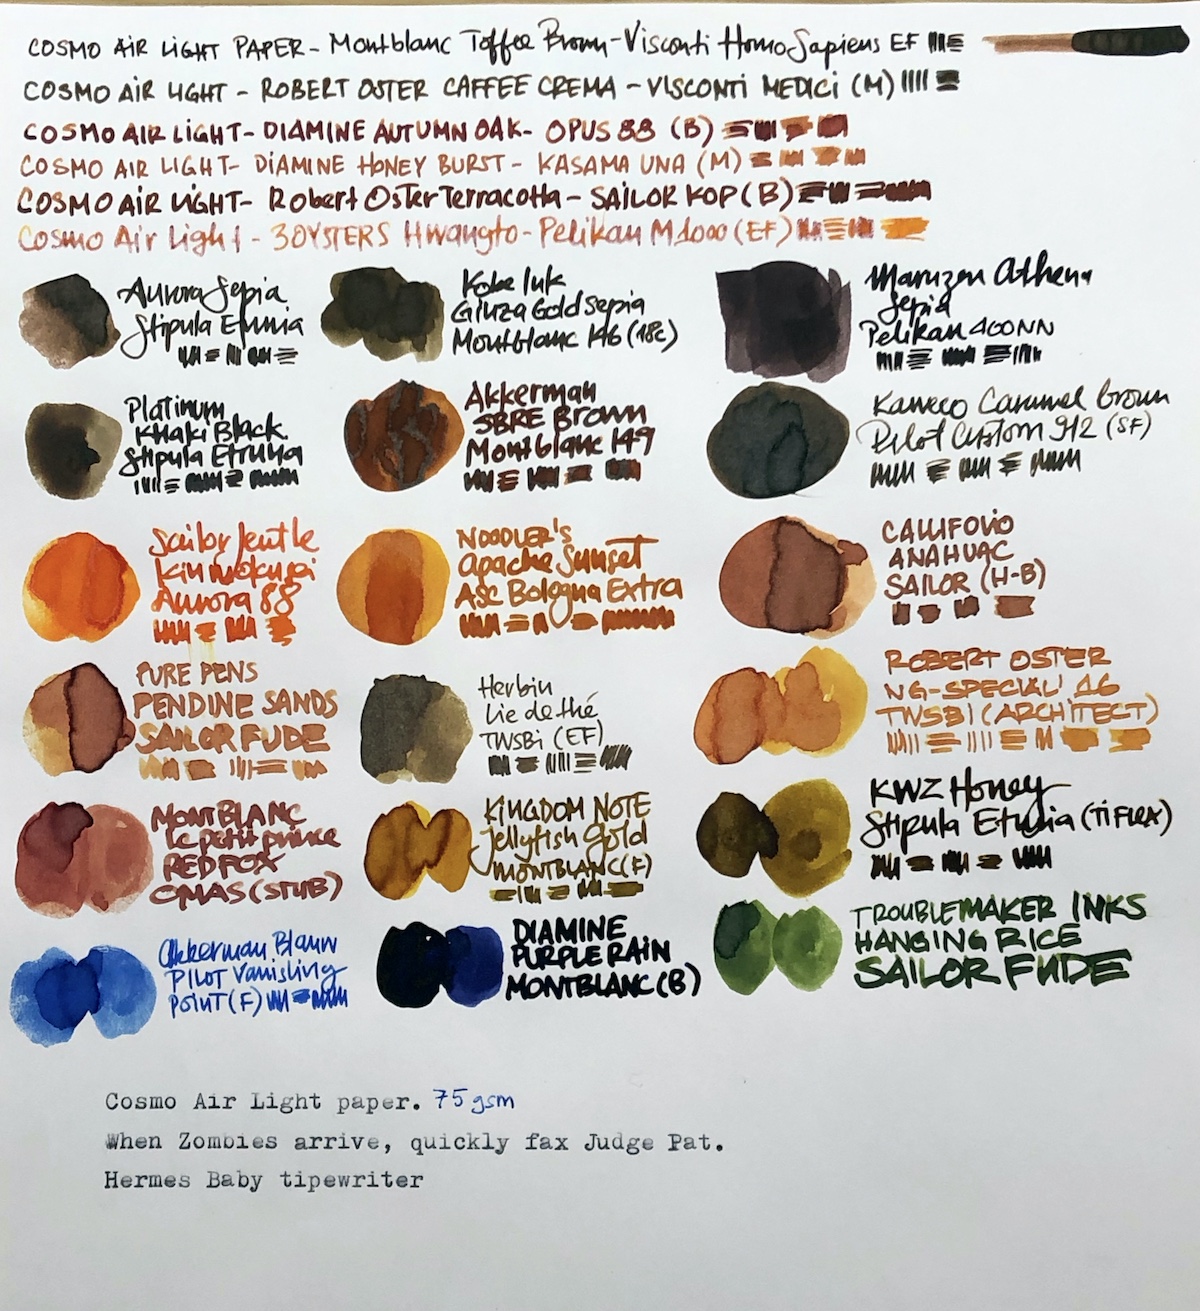 COSMO AiR LiGHT PAPER - Montblanc Toffee Brown - Visconti Homo Sapiens EF
COSMO AiR LIGHT - ROBERT OSTER CAFFEE CREMA - VISCONTi MEDiCi (M)
COSMO AIR LiGHT - DIAMINE AUTUMN OAK - OPUS 88 (B)
COSMO AIR LIGHT - DiAMINE HONEY BURST - KASAMA UNA (M)
COSMO AiR LiGHT - Robert Oster Terracotta - SAiLOR KOP (B)
Cosmo Air Light - 3OYSTERS Hwangto - Pelikan M1000 (EF)
Aurora Sepia
Stipula Etruria
Kobe Ink
Ginza Gold sepia
Montblanc 146 (18c)
Maruzen Athena
Sepia
Pelikan 400NN
Platinum
Khaki Black
Stipula Etruria
Akkerman
SBRE Brown
Montblanc 149
Kaweco Caramel brown
Pilot Custom 912 (SF)
Sailor Jentle
Kinmokusei
Aurora 88
NOODLER'S
Apache Sunset
ASC Bologna Extra
CALLIFOLIO
ANAHUAC
SAILOR (H-B)
PURE PENS
PENDINE SANDS
SAILOR FUDE
Herbin
Lie de thé
TWSBi (EF)
ROBERT OSTER
NG-SPECIAL' 16
TWSBI (ARCHITECT)
MONTBLANC
le petit prince
RED FOX
OMAS (STUB)
KINGDOM NOTE
Jellyfish gold
MONTBLANC (F)
KWZ Honey
Stipula Etruria (Ti FLEX)
Akkerman Blauw
PILOT Vanishing
POINT (F)
DIAMINE
PURPLE RAIN
MONTBLANC (B)
TROUBLEMAKER INKS
HANGING RICE
SAILOR FUDE
Cosmo Air Light paper. 75 gsm
When Zombies arrive, quickly fax Judge Pat.
Hermes Baby tipewriter